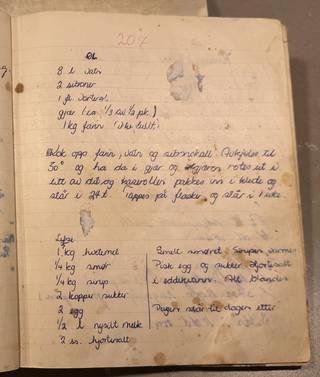 207
ØL
8 l vatn
2 sitroner
1 fl. vørterøl
gjær (ca. 1/3 av 1/2 pk.)
1 kg farin (ikke fullt)
Kok opp farin, vatn og sitronskall. Avkjøles til
30° og ha da i gjær og gjæren røres ut i
litt av det, og kasserollen pakkes inn i klede og
står i 24 t. Tappes på flasker og står i 1 uke
Lefse
1 kg hvetemel
1/4 kg smør
1/4 kg sirup
2 kopper sukker
2 egg
1/2 l nysilt melk
2 ss. hjortesalt
Smelt smøret Sirupen varmes
Pisk egg og sukker Hjortesalt
i Alt blandes
Deigen står til dagen etter